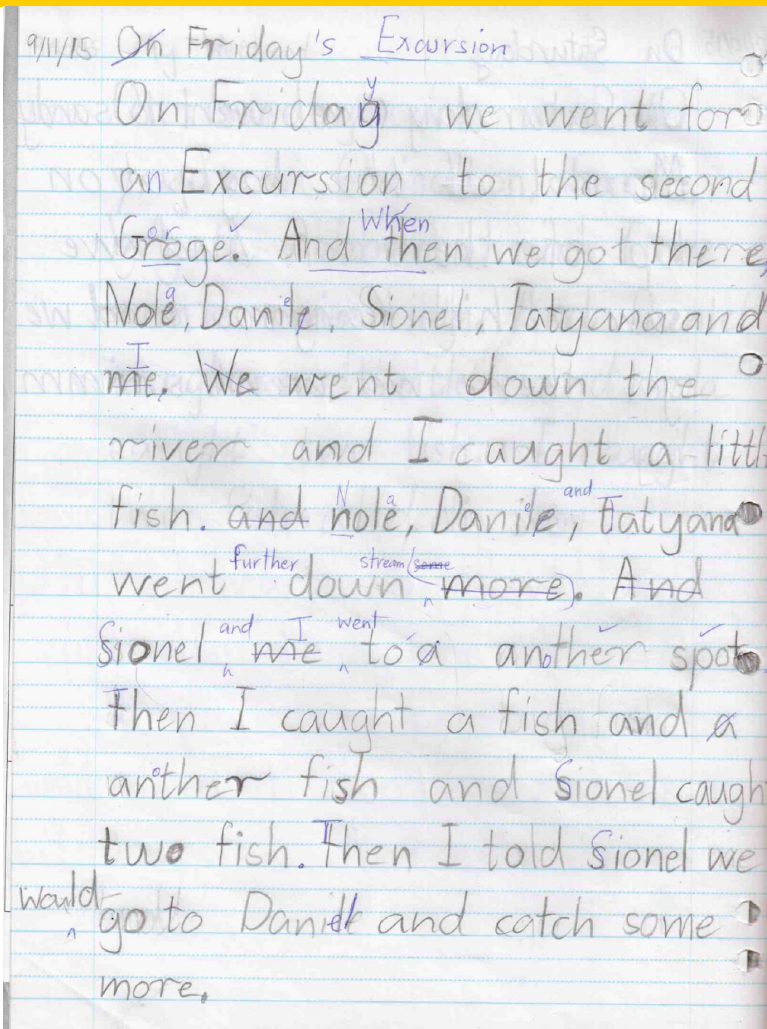 9/11/15 On Friday's Excursion
y
On Friday we went for
an Excursion to the second
or When
Groge. And then we got there,
a e
Nole, Danile, Sionel, Tatyana and
I
me. We went down the
river and I caught a littl
N a and
fish. and nole, Danile, Tatyana
further stream (some
went down more). And
and I went
Sionel me to a another spot.
Then I caught a fish and a
o
anther fish and Sionel caugh
two fish. Then I told Sionel we
would
go to Daniel and catch some
more.